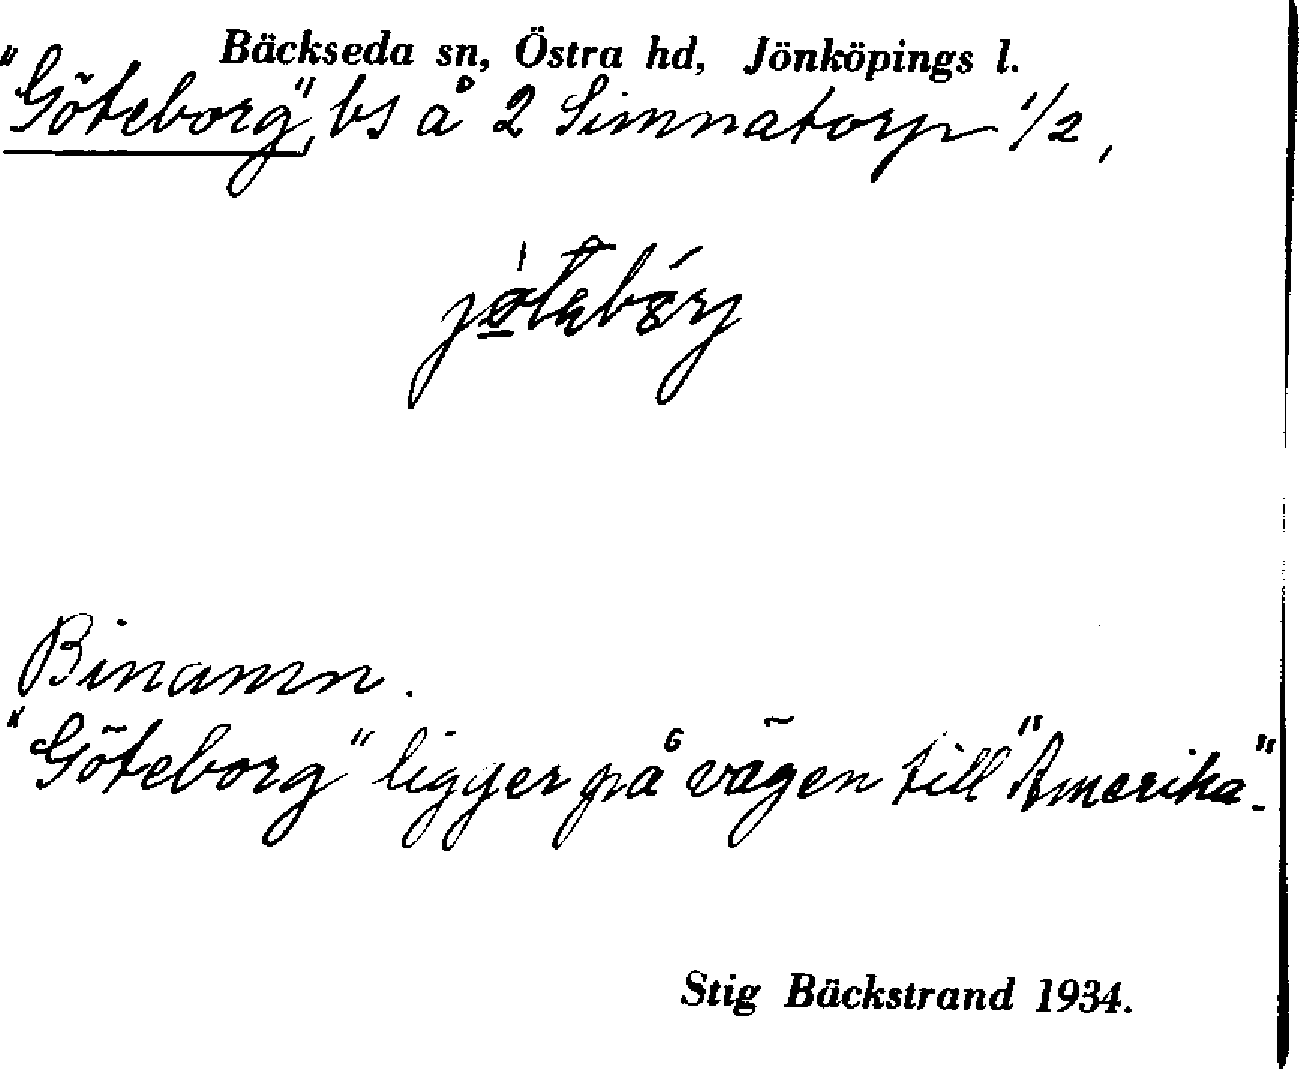 Bäckseda sn, Östra hd, Jönköpings l.
"Göteborg", bs å 2 Simnatorp 1/2,
Binamn.
"Göteborg" ligger på vägen till "Amerika".
Stig Bäckstrand 1934.